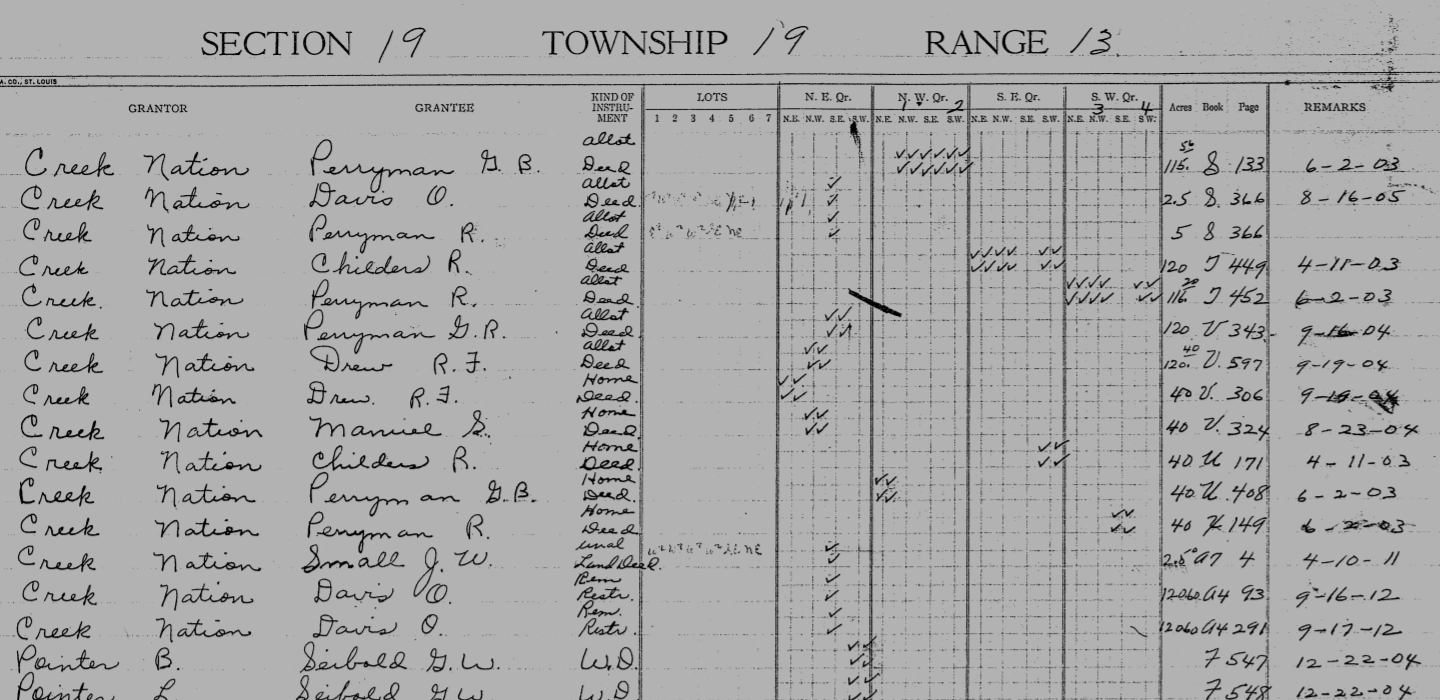 SECTION 19 TOWNSHIP 19 RANGE 13
A. CO., ST. LOUIS
GRANTOR GRANTEE KIND OF INSTRU- MENT LOTS N. E. Qr. N. W. Qr. S. E. Qr. S. W. Qr. Acres Book Page REMARKS
1 2 3 4
1 2 3 4 5 6 7 N.E. N.W. S.E. S.W. N.E. N.W. S.E. S.W. N.E. N.W. S.E. S.W. N.E. N.W. S.E. S.W.
Creek Nation Perryman G. B. Allot Deed 115. 56 S 133 6-2-03
Creek Nation Davis O. Allot Deed 2.5 S. 366 8-16-05
Creek Nation Perryman R. Allot Deed 5 S 366
Creek Nation Childers R. Allot Deed 120 T 449 4-11-03
Creek. Nation Perryman R. Allot Deed 116 20 T 452 6-2-03
Creek Nation Perryman G.R. Allot Deed 120 V 343 9-16-04
Creek Nation Drew R.F. Allot Deed 120. 40 V. 597 9-19-04
Creek Nation Drew. R.F. Home Deed. 40 V. 306 9-19-04
Creek Nation Manuel S. Home Deed 40 V. 324 8-23-04
Creek Nation Childers R. Home Deed. 40 U 171 4-11-03
Creek Nation Perryman G.B. Home Deed. 40 U. 408 6-2-03
Creek Nation Perryman R. Home Deed 40 149 6-2-03
Creek Nation Small J. W. Unal Land Deed. 2.5 A7 4 4-10-11
Creek Nation Davis O. Rem Restr. 12060 A4 93 9-16-12
Creek Nation Davis O. Rem. Restr. 12060 A4 291 9-17-12
Pointer B. Seibold G.W. W.D. 7 547 12-22-04
Pointer L. Seibold G.W. W.D 7 548 12-22-04